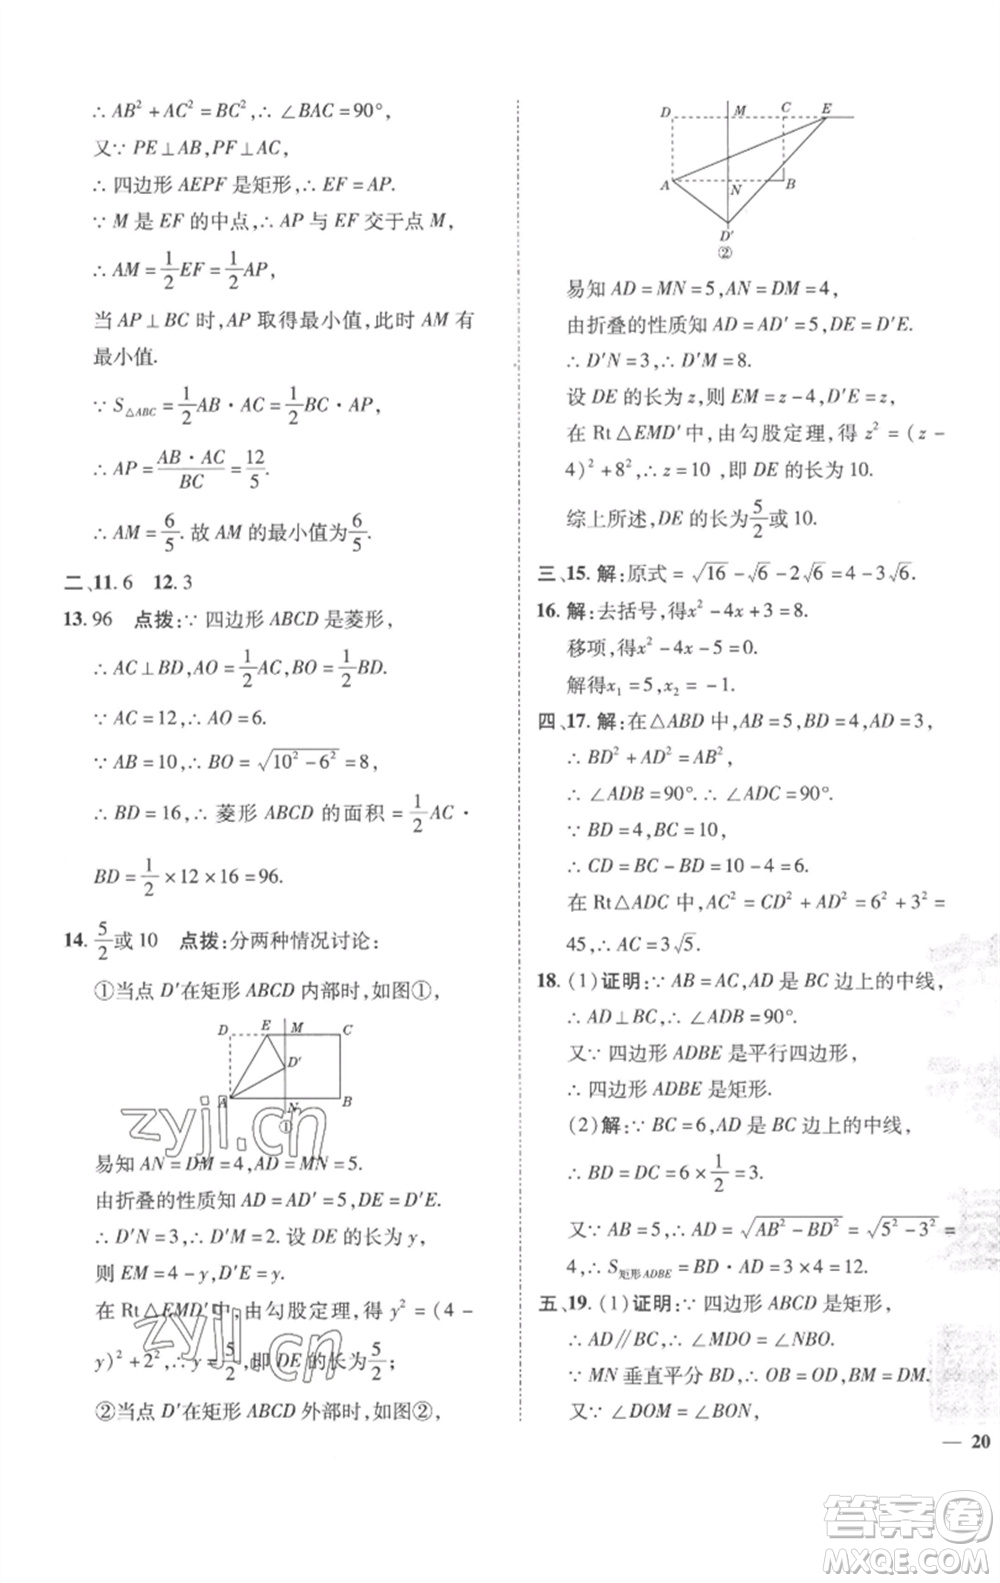 ∴ AB²+AC²=BC²,∴ ∠BAC=90°,
又∵ PE⊥AB,PF⊥AC,
∴ 四边形 AEPF 是矩形,∴ EF=AP.
∵ M 是 EF 的中点,∴ AP 与 EF 交于点 M,
∴ AM=1/2EF=1/2AP,
当 AP⊥BC 时,AP 取得最小值,此时 AM 有
最小值.
∵ S△ABC=1/2AB·AC=1/2BC·AP,
∴ AP=AB·AC/BC=12/5.
∴ AM=6/5.故 AM 的最小值为6/5.
二、11. 6 12. 3
13. 96 点拨:∵ 四边形 ABCD 是菱形,
∴ AC⊥BD,AO=1/2AC,BO=1/2BD.
∵ AC=12,∴ AO=6.
∵ AB=10,∴ BO=√(10²-6²)=8,
∴ BD=16,∴ 菱形 ABCD 的面积=1/2AC·
BD=1/2×12×16=96.
14. 5/2或 10 点拨:分两种情况讨论:
①当点 D′在矩形 ABCD 内部时,如图①,
D E M C
D′
A N B
①
易知 AN=DM=4,AD=MN=5.
由折叠的性质知 AD=AD′=5,DE=D′E.
∴ D′N=3,∴ D′M=2. 设 DE 的长为 y,
则 EM=4-y,D′E=y.
在 Rt△EMD′中,由勾股定理,得 y²=(4-
y)²+2²,∴ y=5/2,即 DE 的长为5/2;
②当点 D′在矩形 ABCD 外部时,如图②,
D M C E
A N B
D′
②
易知 AD=MN=5,AN=DM=4,
由折叠的性质知 AD=AD′=5,DE=D′E.
∴ D′N=3,∴ D′M=8.
设 DE 的长为 z,则 EM=z-4,D′E=z,
在 Rt△EMD′中,由勾股定理,得 z²=(z-
4)²+8²,∴ z=10,即 DE 的长为 10.
综上所述,DE 的长为5/2或 10.
三、15. 解:原式=√16-√6-2√6=4-3√6.
16. 解:去括号,得x²-4x+3=8.
移项,得x²-4x-5=0.
解得x₁=5,x₂=-1.
四、17. 解:在△ABD 中,AB=5,BD=4,AD=3,
∴ BD²+AD²=AB²,
∴ ∠ADB=90°.∴ ∠ADC=90°.
∵ BD=4,BC=10,
∴ CD=BC-BD=10-4=6.
在 Rt△ADC 中,AC²=CD²+AD²=6²+3²=
45,∴ AC=3√5.
18. (1)证明:∵ AB=AC,AD 是 BC 边上的中线,
∴ AD⊥BC,∴ ∠ADB=90°.
又∵ 四边形 ADBE 是平行四边形,
∴ 四边形 ADBE 是矩形.
(2)解:∵ BC=6,AD 是 BC 边上的中线,
∴ BD=DC=6×1/2=3.
又∵ AB=5,∴ AD=√(AB²-BD²)=√(5²-3²)=
4,∴ S矩形ADBE=BD·AD=3×4=12.
五、19. (1)证明:∵ 四边形 ABCD 是矩形,
∴ AD∥BC,∴ ∠MDO=∠NBO.
∵ MN 垂直平分 BD,∴ OB=OD,BM=DM.
又∵ ∠DOM=∠BON,
— 20
zyjl.cn
zyjl.cn
答案圈
MXQE.COM